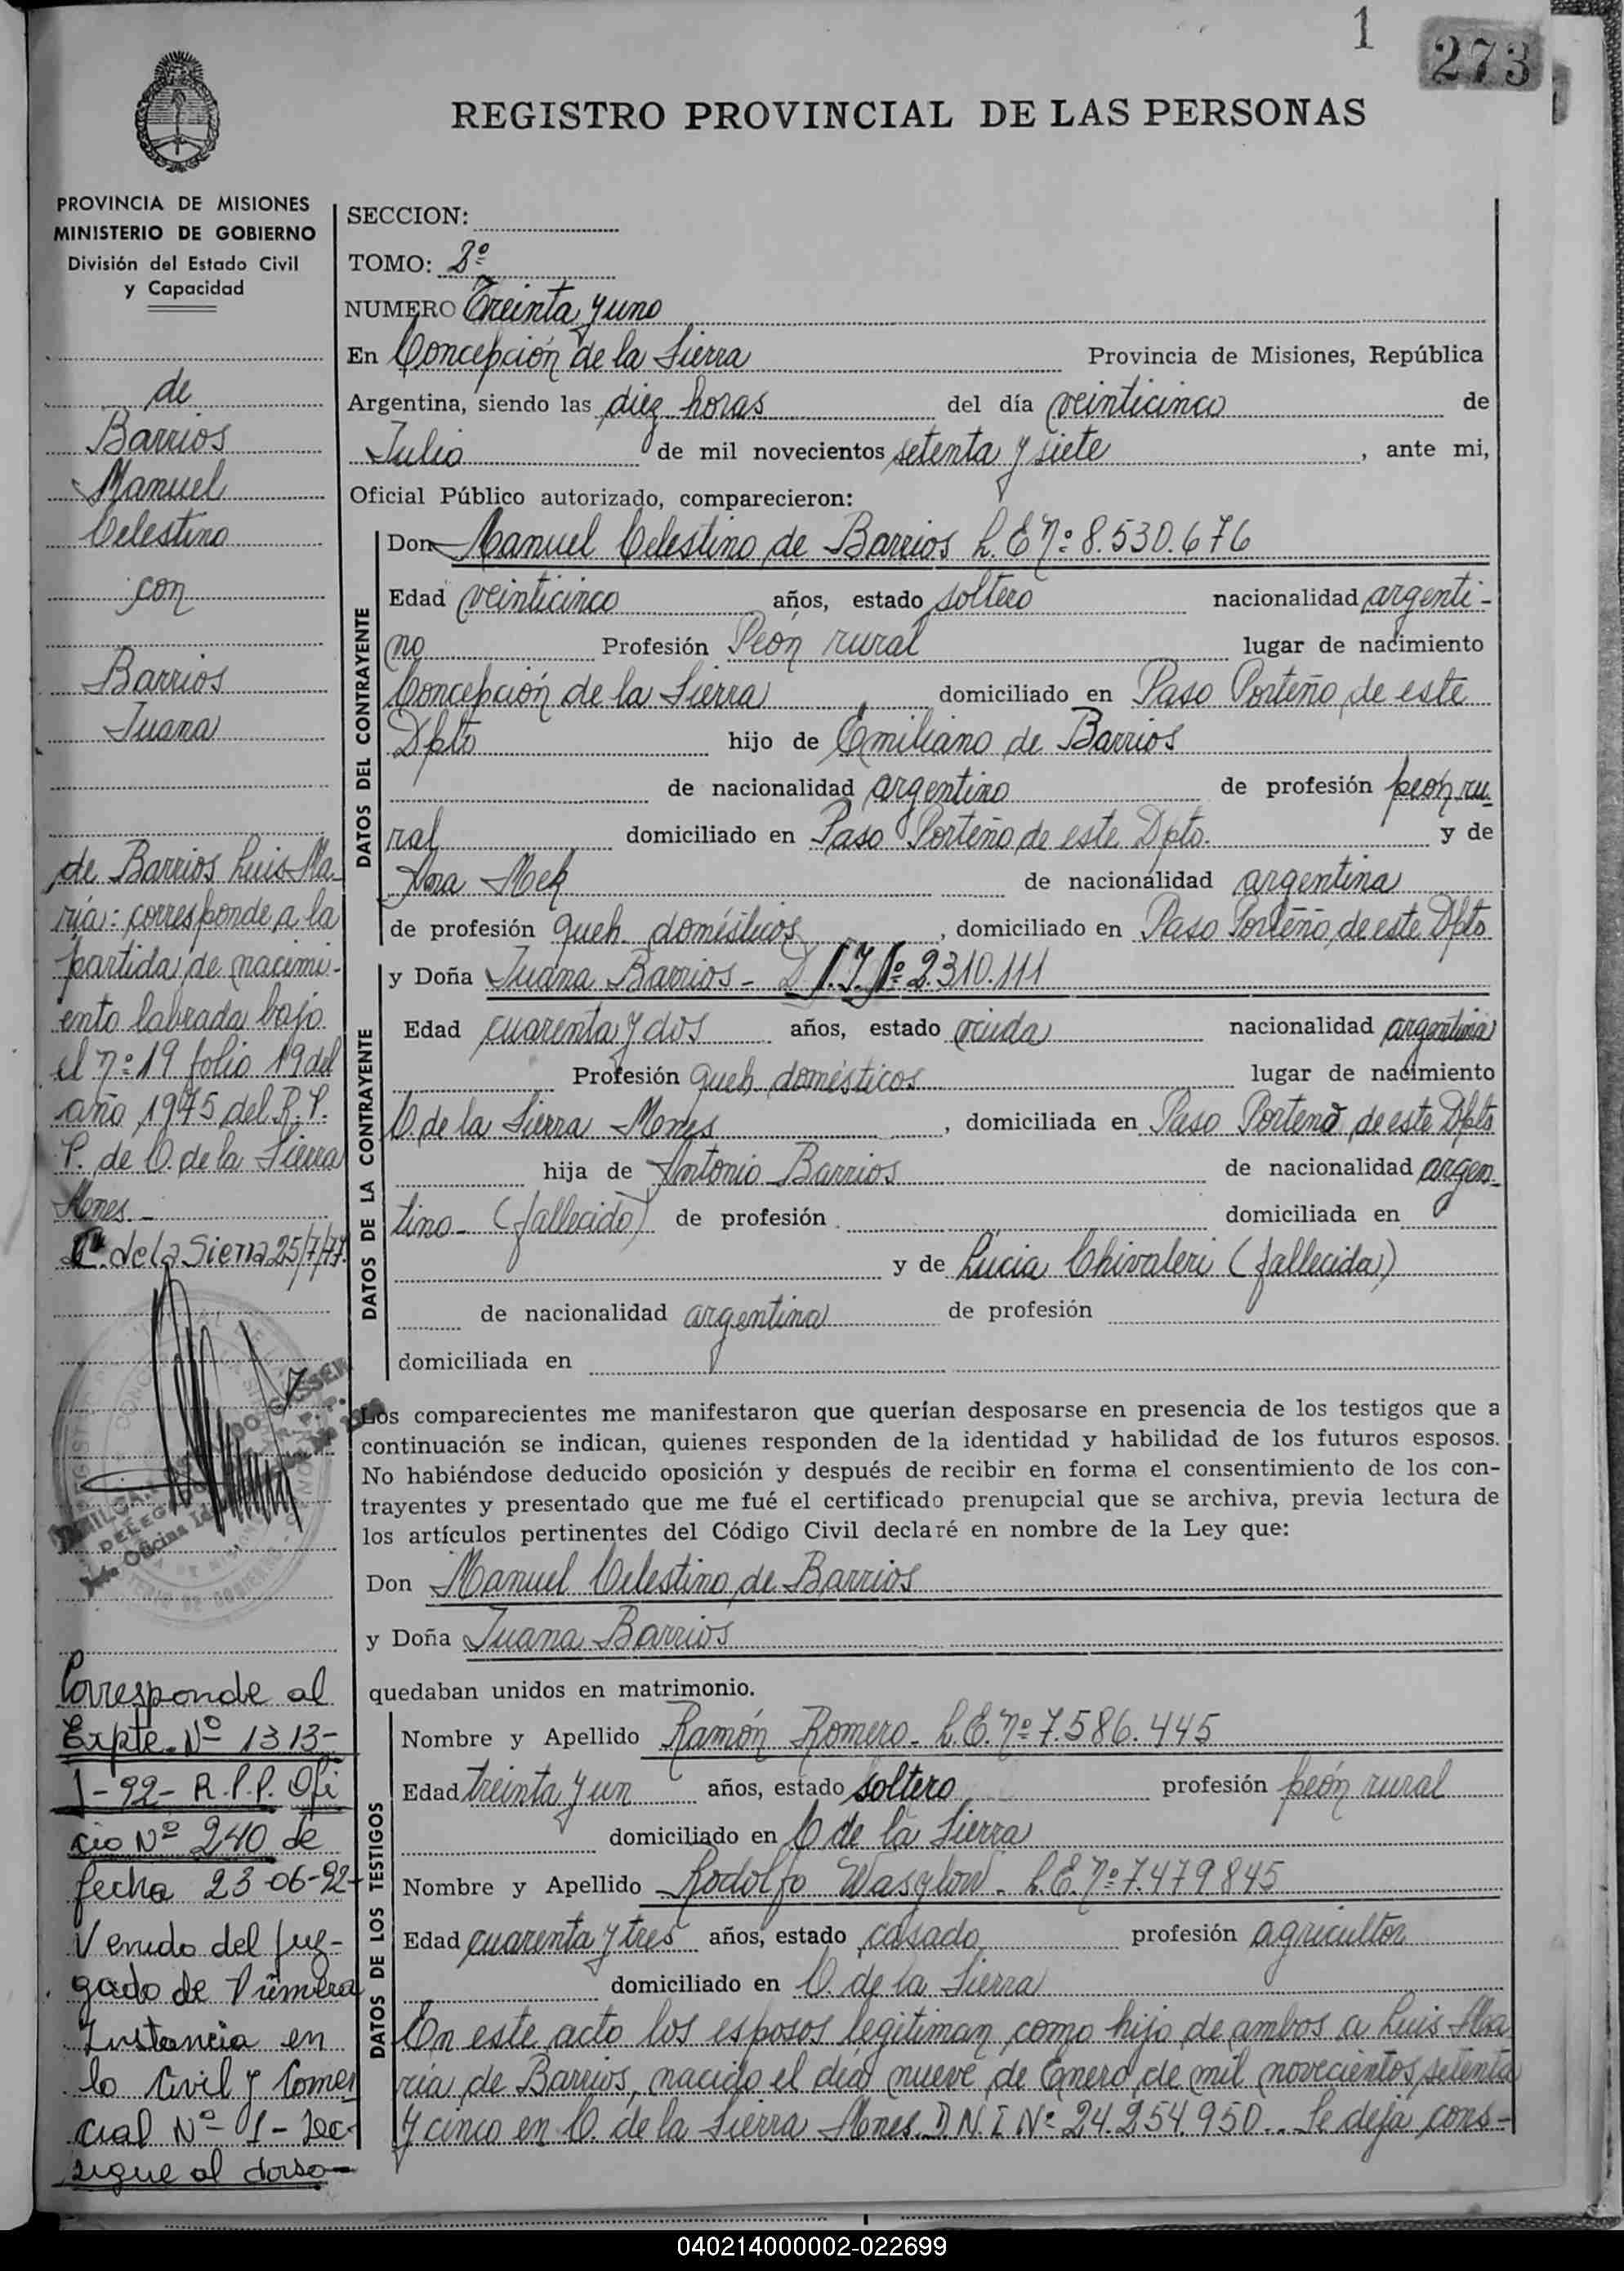 1
273
REGISTRO PROVINCIAL DE LAS PERSONAS
PROVINCIA DE MISIONES
MINISTERIO DE GOBIERNO
División del Estado Civil
y Capacidad
de
Barrios
Manuel
Celestino
con
Barrios
Juana
de Barrios Luis Ma-
ría: corresponde a la
partida de nacimi-
ento labrada bajo
el nº: 19 folio 19 del
año 1975 del R. P.
P. de C. de la Sierra
Mnes.-
C. de la Sierra 25/7/77.
GASSER
Corresponde al
Expte. Nº 1313-
1-92- R.P.P. Ofi
cio Nº 240 de
fecha 23-06-92-
Venido del Juz-
gado de Primera
Instancia en
lo Civil y Comer
cial Nº 1- Sec-
sigue al dorso-
SECCION:
TOMO: 2º
NUMERO Treinta y uno
En Concepción de la Sierra Provincia de Misiones, República
Argentina, siendo las diez horas del día veinticinco de
Julio de mil novecientos setenta y siete, ante mi,
Oficial Público autorizado, comparecieron:
DATOS DEL CONTRAYENTE
Don Manuel Celestino de Barrios L. E nº: 8.530.676
Edad veinticinco años, estado soltero nacionalidad argenti-
no Profesión Peón rural lugar de nacimiento
Concepción de la Sierra domiciliado en Paso Porteño de este
Dpto hijo de Emiliano de Barrios
de nacionalidad argentino de profesión peón ru-
ral domiciliado en Paso Porteño de este Dpto. y de
Ana de nacionalidad argentina
de profesión queh. domésticos, domiciliado en Paso Porteño de este Dpto
DATOS DE LA CONTRAYENTE
y Doña Juana Barrios - D.N.I. Nº 2.310.111
Edad cuarenta y dos años, estado viuda nacionalidad argentina
Profesión queh. domésticos lugar de nacimiento
C. de la Sierra Mnes, domiciliada en Paso Porteño de este Dpto
hija de Antonio Barrios de nacionalidad argen-
tino- (fallecido) de profesión domiciliada en
y de Lucia Chivaleri (fallecida)
de nacionalidad argentina de profesión
domiciliada en
Los comparecientes me manifestaron que querían desposarse en presencia de los testigos que a
continuación se indican, quienes responden de la identidad y habilidad de los futuros esposos.
No habiéndose deducido oposición y después de recibir en forma el consentimiento de los con-
trayentes y presentado que me fué el certificado prenupcial que se archiva, previa lectura de
los artículos pertinentes del Código Civil declaré en nombre de la Ley que:
Don Manuel Celestino de Barrios
y Doña Juana Barrios
quedaban unidos en matrimonio.
DATOS DE LOS TESTIGOS
Nombre y Apellido Ramón Romero- L.E. nº 7.586.445
Edad treinta y un años, estado soltero profesión peón rural
domiciliado en C de la Sierra
Nombre y Apellido Rodolfo Wasylow. L.E. nº 7.479845
Edad cuarenta y tres años, estado casado profesión agricultor
domiciliado en C. de la Sierra
En este acto los esposos legitiman como hijo de ambos a Luis Ma
ría de Barrios, nacido el día nueve de Enero de mil novecientos setenta
y cinco en C. de la Sierra Mnes. D.N.I Nº 24.254.950.. Se deja cons-
040214000002-022699